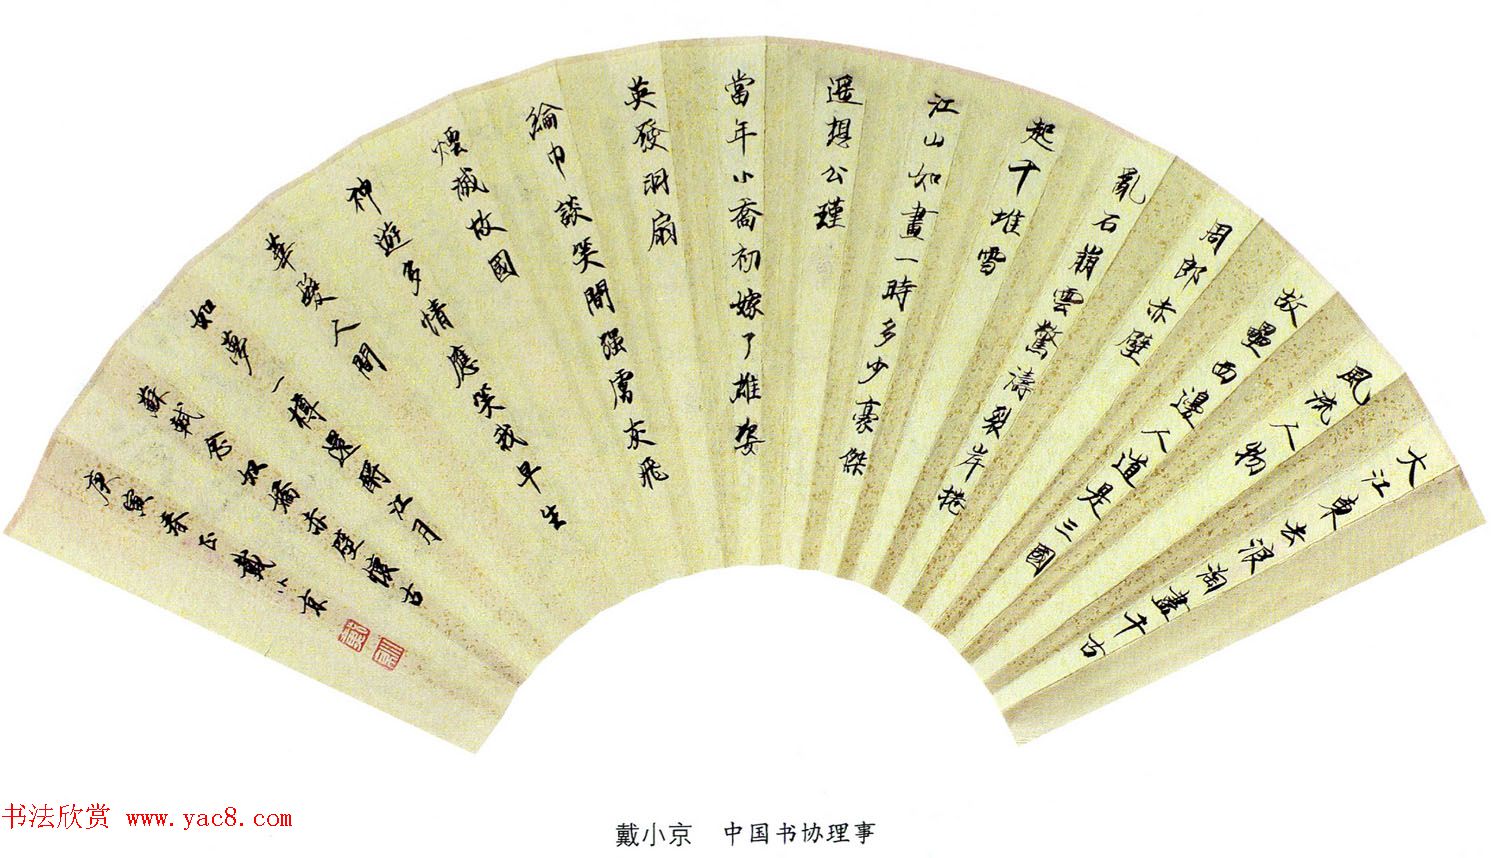 大江東去浪淘盡千古
風流人物
故壘西邊人道是三國
周郎赤壁
亂石崩雲驚濤裂岸捲
起千堆雪
江山如畫一時多少豪傑
遥想公瑾
當年小喬初嫁了雄姿
英發羽扇
綸巾談笑間强虜灰飛
煙滅故國
神遊多情應笑我早生
華髮人間
如夢一樽還酹江月
蘇軾念奴嬌赤壁懷古
庚寅春正戴小京
书法欣赏 www.yac8.com
戴小京 中国书协理事